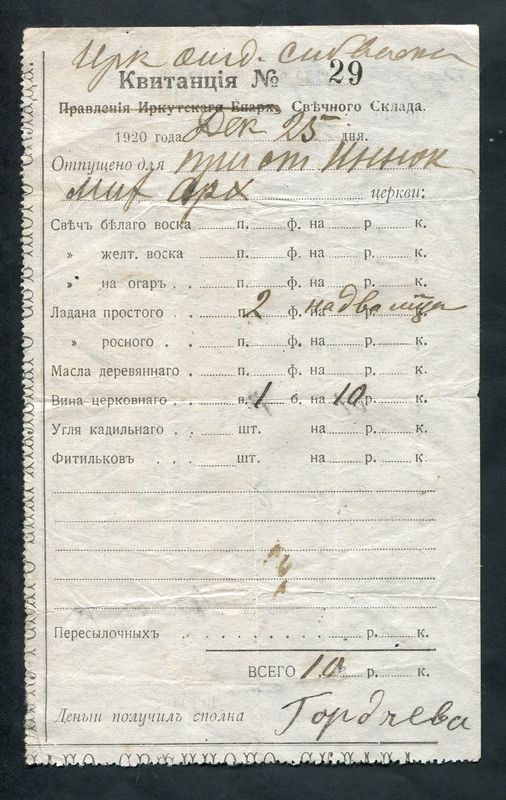 Квитанція № 29
Правленія Иркутскаго Епарх. Свѣчного Склада.
1920 года Дек 25 дня.
Отпущено для
Мих Арх церкви:
Свѣчъ бѣлаго воска п. ф. на р. к.
» желт. воска п. ф. на р. к.
» на огаръ п. ф. на р. к.
Ладана простого . . п. 2 ф. на р. к.
» росного . . п. ф. на р. к.
Масла деревяннаго . п. ф. на р. к.
Вина церковнаго . . в. 1 б. на 10 р. к.
Угля кадильнаго . . шт. на р. к.
Фитильковъ . . шт. на р. к.
Пересылочныхъ . . . . . . . . р. к.
ВСЕГО 10 р. к.
Деньги получилъ сполна